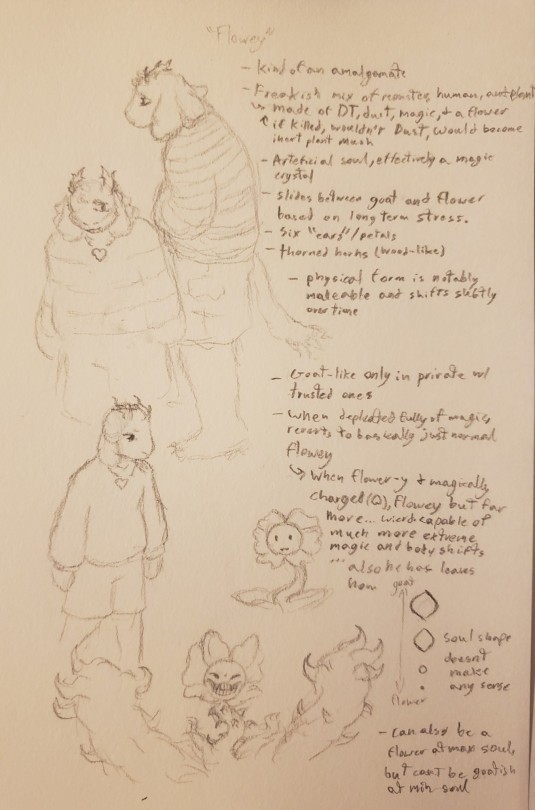 "Flowey"
- Kind of an amalgamate
- Freakish mix of monster, human, and plant
↳ made of DT, dust, magic, & a flower
↑ if killed, wouldn't Dust, would become
inert plant mush
- Arteficial soul, effectively a magic
crystal
- slides between goat and flower
based on long term stress.
- Six "ears"/petals
- thorned horns (wood-like)
- physical form is notably
and shifts subtly
over time
- Goat-like only in private w/
trusted ones
- When depleated fully of magic,
reverts to basically just normal
flowey
↳ When flower-y & magically
charged, flowey but far
more... wierd capable of
much more extreme
magic and body shifts
... also he has leaves
now
goat
soul shape
doesn't
make
any sense
flower
- can also be a
flower at max soul,
but cant be goatish
at min soul